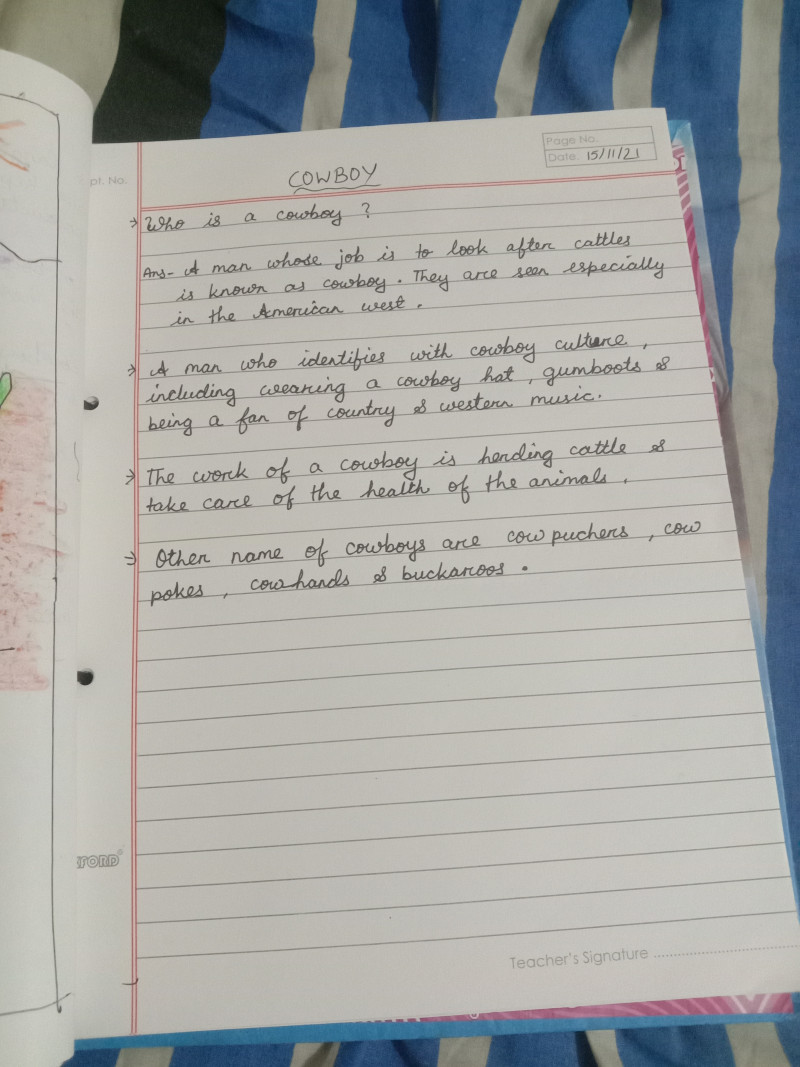 Page No.
Date: 15/11/21
pt. No.
COWBOY
→ Who is a cowboy ?
Ans- A man whose job is to look after cattles
is known as cowboy. They are seen especially
in the American west.
→ A man who identifies with cowboy culture,
including wearing a cowboy hat, gumboots &
being a fan of country & western music.
→ The work of a cowboy is herding cattle &
take care of the health of the animals.
→ Other name of cowboys are cow puchers, cow
pokes, cowhands & buckaroos.
Teacher's Signature